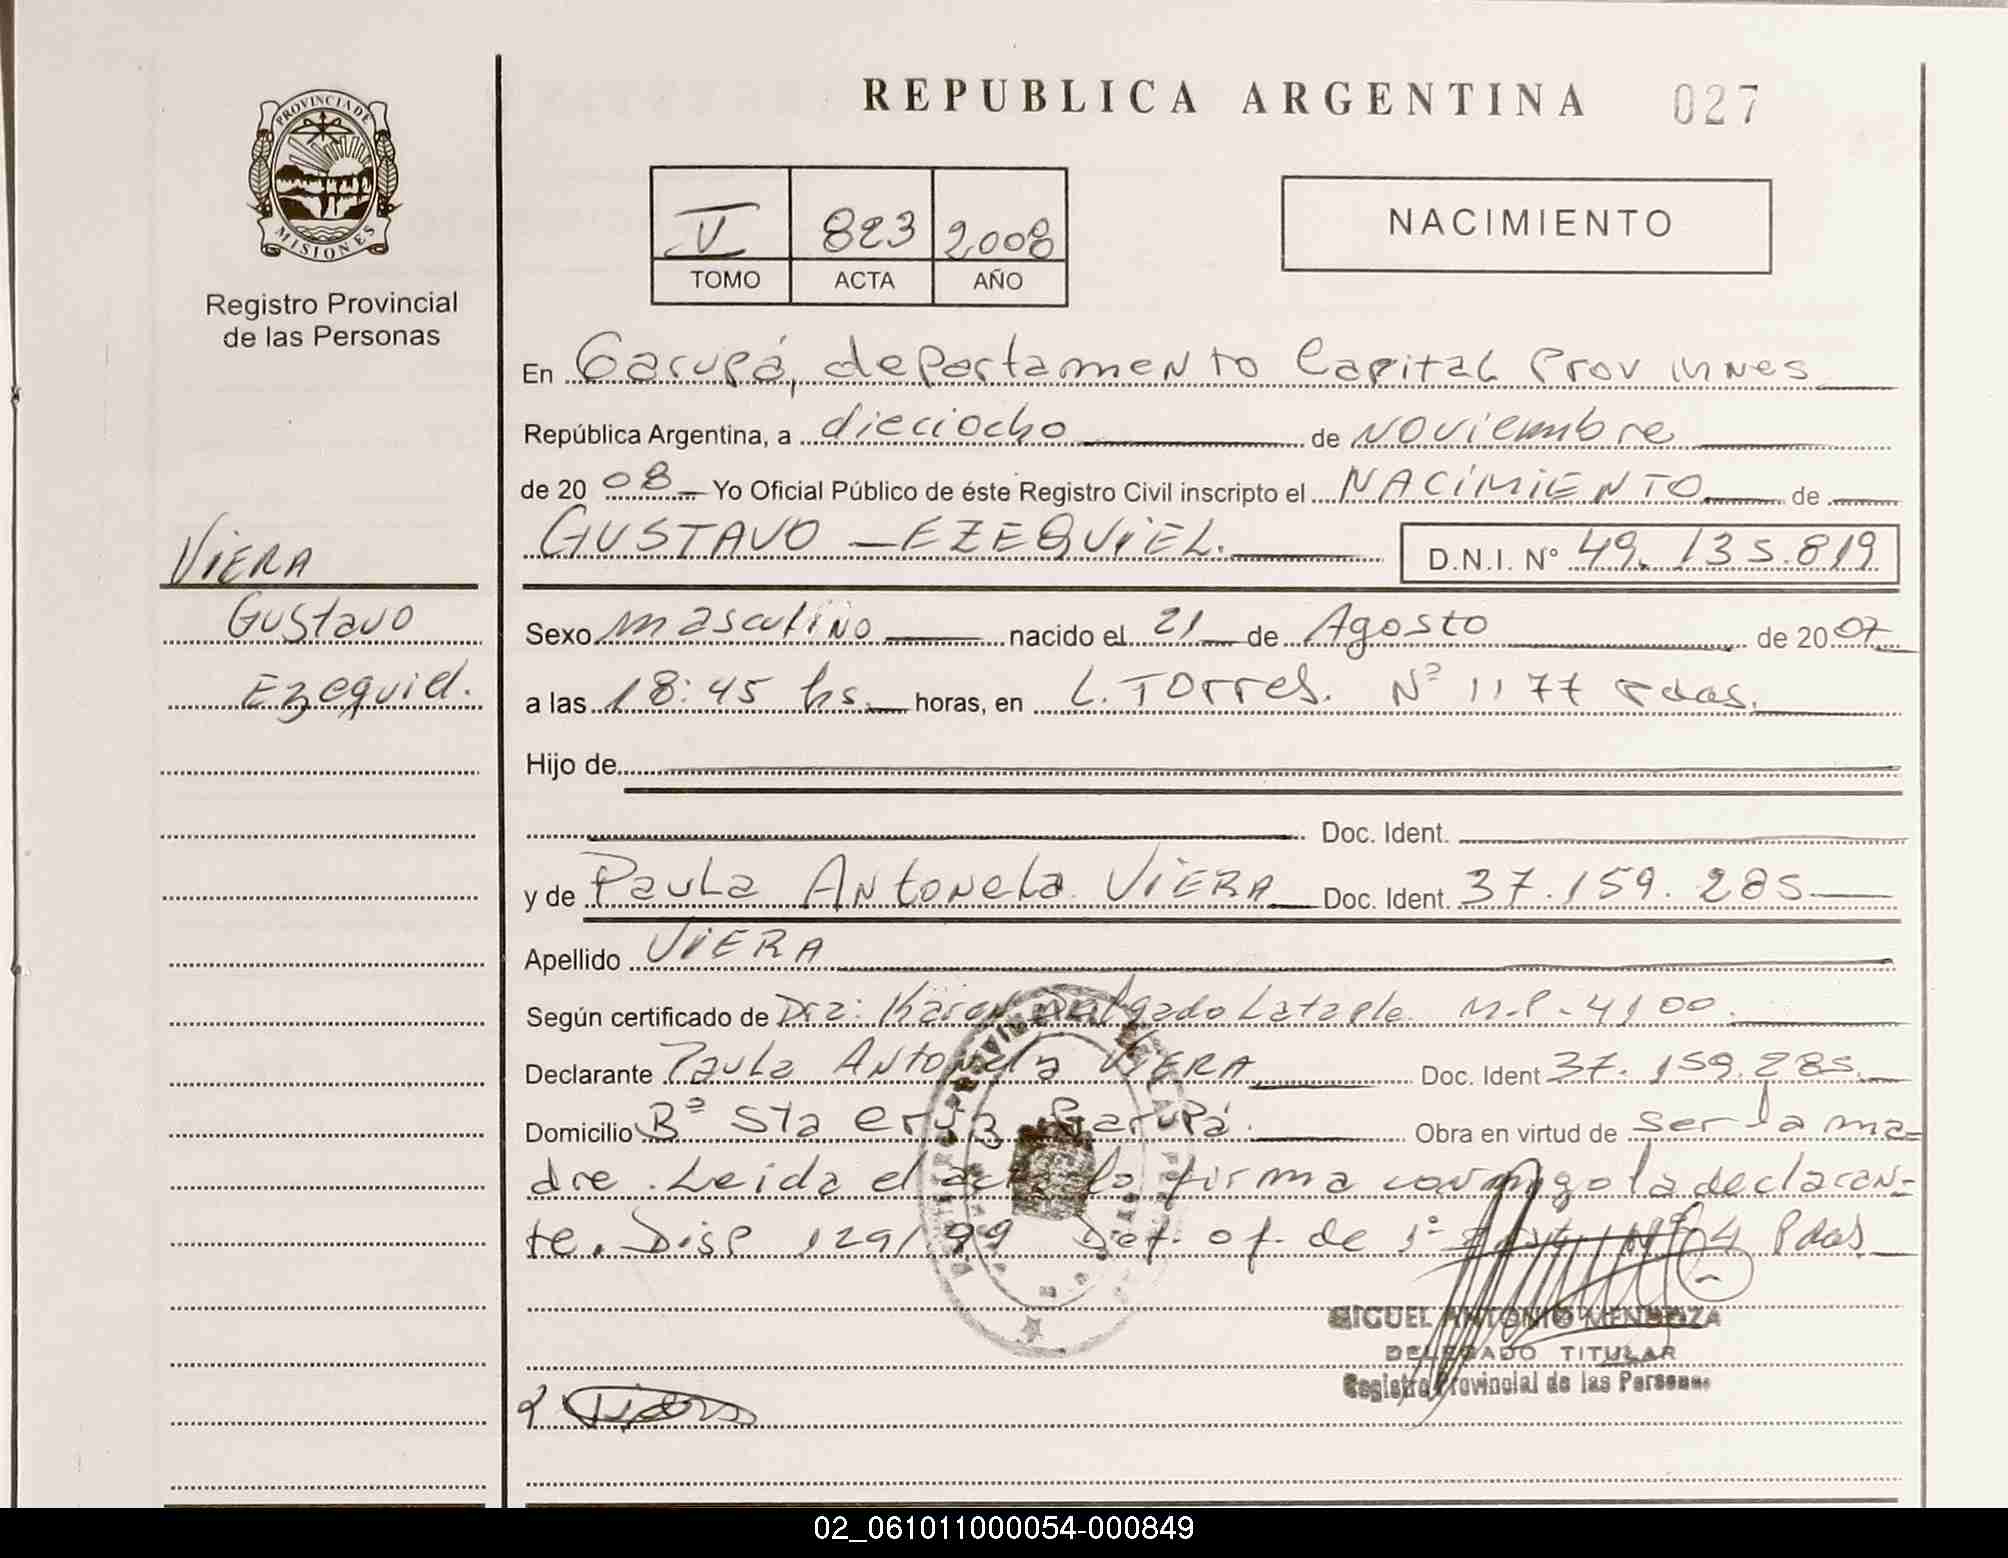 REPUBLICA ARGENTINA 027
PROVINCIA DE
MISIONES
Registro Provincial
de las Personas
V 823 2008
TOMO ACTA AÑO
NACIMIENTO
En Garupá, departamento Capital Prov
República Argentina, a dieciocho de noviembre
de 20 08 Yo Oficial Público de éste Registro Civil inscripto el NACIMIENTO de
GUSTAVO - EZEQUIEL. D.N.I. Nº 49.135.819
VIERA
Gustavo
Ezequiel.
Sexo masculino nacido el 21 de Agosto de 2007
a las 18:45 hs. horas, en L. Torres. Nº 1177 Pdas.
Hijo de
Doc. Ident.
y de Paula Antonela VIERA Doc. Ident. 37.159.285
Apellido VIERA
Según certificado de Dra: Karen Delgado Lataple M.P. 4100.
Declarante Paula Antonela VIERA Doc. Ident 37.159.285.
Domicilio Bº Sta Cruz Garupá. Obra en virtud de ser la ma=
dre. Leida el acta la firma conmigo la declaran=
te. Disp 129/99 of. de 1º Nº 4 Pdas
MIGUEL ANTONIO MENDOZA
DELEGADO TITULAR
Registro Provincial de las Personas
02_061011000054-000849